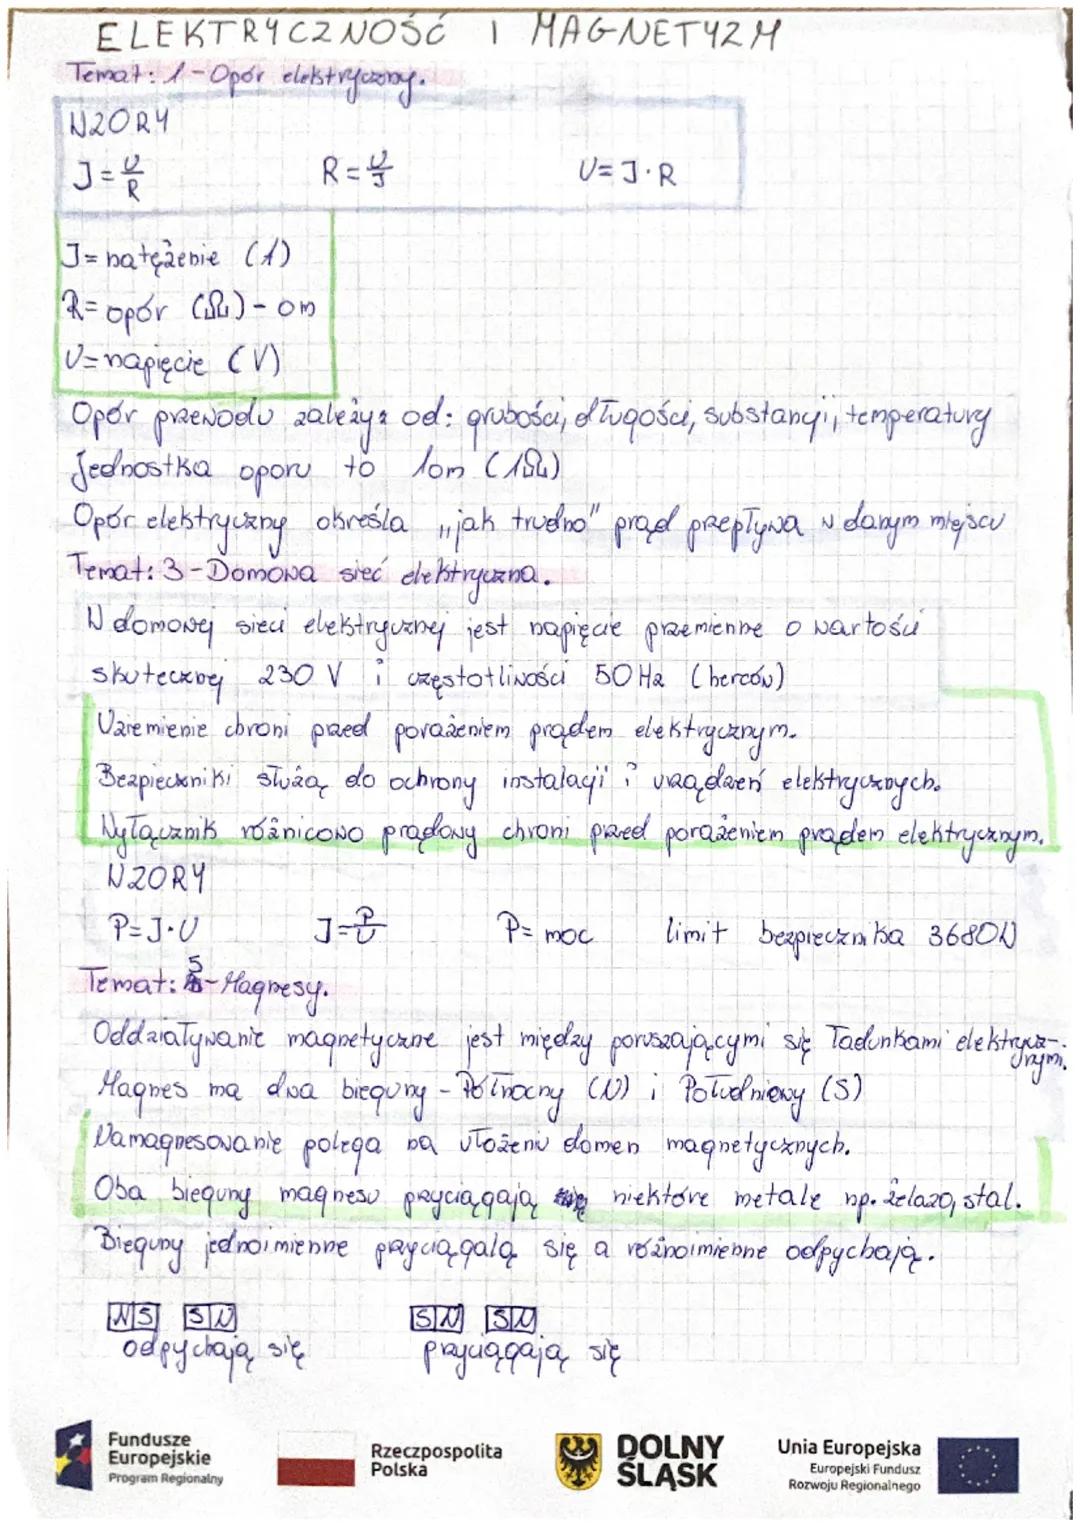 ELEKTRYCZNOŚĆ I MAGNETYZM
Temat: 1-Opór elektryczny.
WZORY
I=U/R R=U/I U=I·R
I=natężenie (A)
R=opór (Ω)-om
U=napięcie (V)
Opór przewodu zależy od: grubości, długości, substancji, temperatury
Jednostka oporu to 1om (1Ω)
Opór elektryczny określa „jak trudno" prąd przepływa w danym miejscu
Temat: 3-Domowa sieć elektryczna.
W domowej sieci elektrycznej jest napięcie przemienne o wartości
skutecznej 230 V i częstotliwości 50 Hz (herców)
Uziemienie chroni przed porażeniem prądem elektrycznym.
Bezpieczniki służą do ochrony instalacji i urządzeń elektrycznych.
Wyłącznik różnicowo prądowy chroni przed porażeniem prądem elektrycznym.
WZORY
P=I·U I=P/U P=moc limit bezpiecznika 3680W
Temat: 5-Magnesy.
Oddziaływanie magnetyczne jest między poruszającymi się ładunkami elektrycz-
nymi.
Magnes ma dwa bieguny - Północny (N) i Południowy (S)
Namagnesowanie polega na ułożeniu domen magnetycznych.
Oba bieguny magnesu przyciągają niektóre metale np. żelazo, stal.
Bieguny jednoimienne przyciągalą się a różnoimienne odpychają.
N S S N S N S N
odpychają się przyciągają się
Fundusze
Europejskie
Program Regionalny
Rzeczpospolita
Polska
DOLNY
ŚLĄSK
Unia Europejska
Europejski Fundusz
Rozwoju Regionalnego